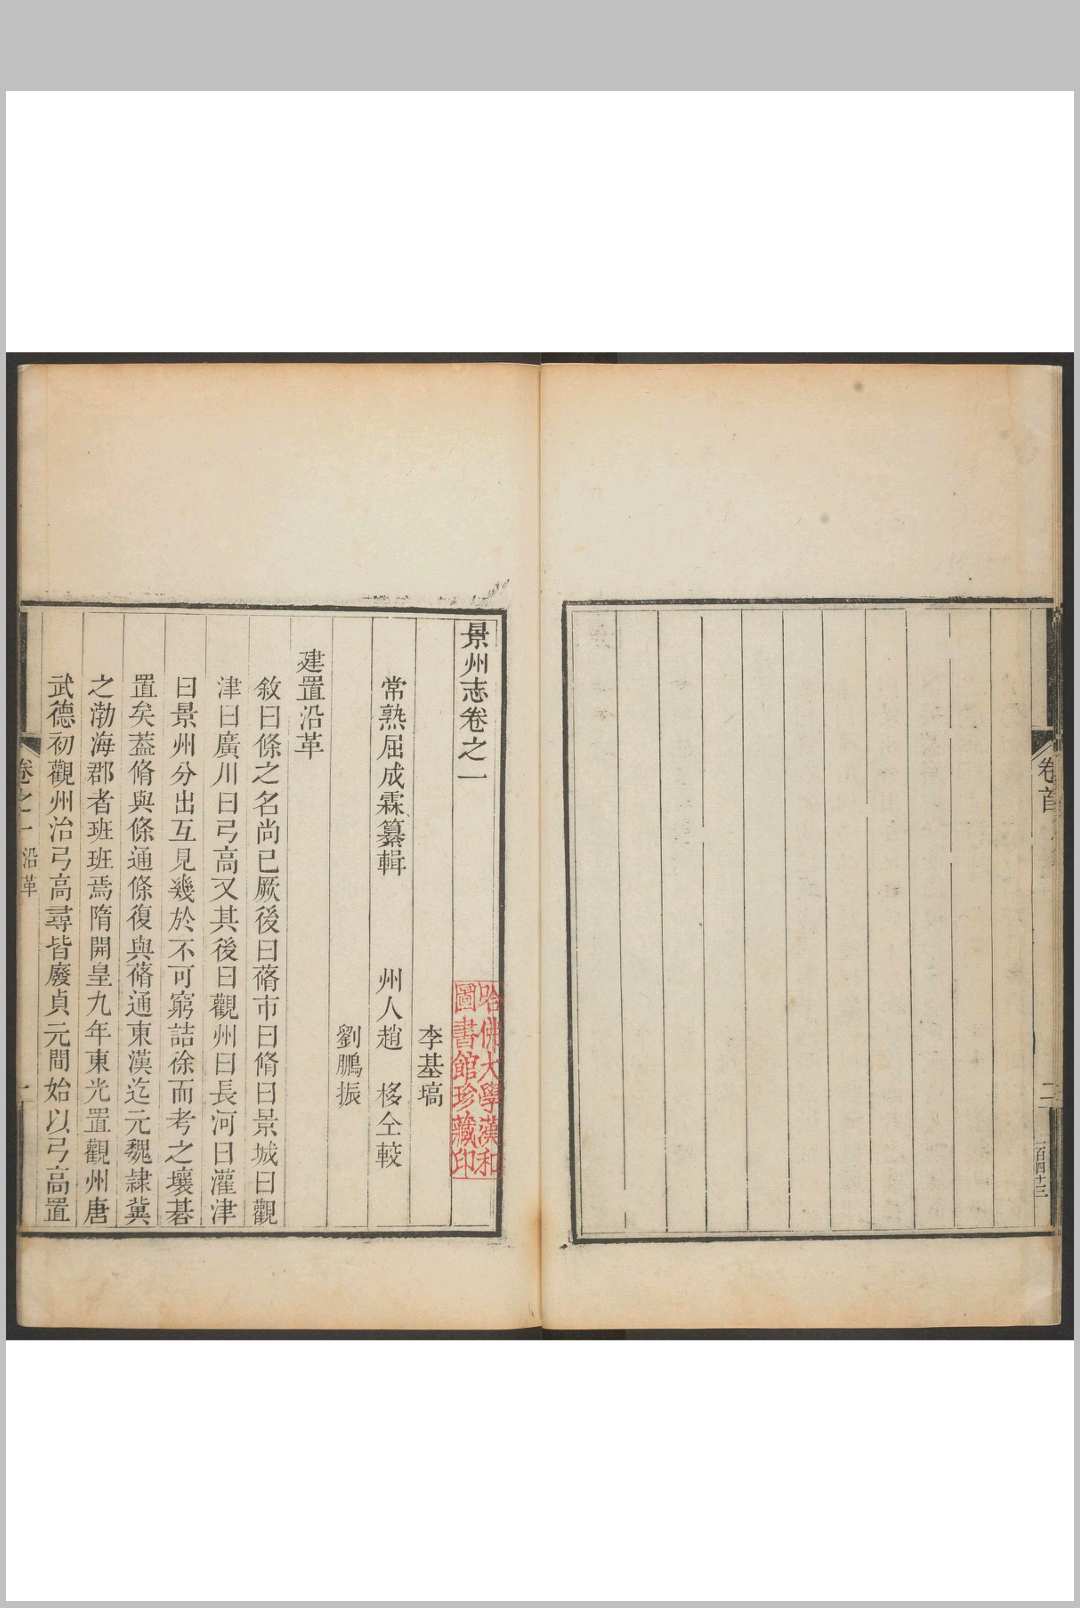 卷首
二
一百四十三
景州志卷之一
李基塙
常熟屈成霖纂輯 州人趙 移仝較
劉鵬振
建置沿革
敘曰條之名尚已厥後曰蓨市曰脩曰景城曰觀
津曰廣川曰弓高又其後曰觀州曰長河曰灌津
曰景州分出互見幾於不可窮詰徐而考之壤碁
置矣葢脩與條通條復與蓨通東漢迄元魏隷冀
之渤海郡者班班焉隋開皇九年東光置觀州唐
武德初觀州治弓高尋皆廢貞元間始以弓高置
卷之一 沿革
一
哈佛大學漢和
圖書館珍藏印